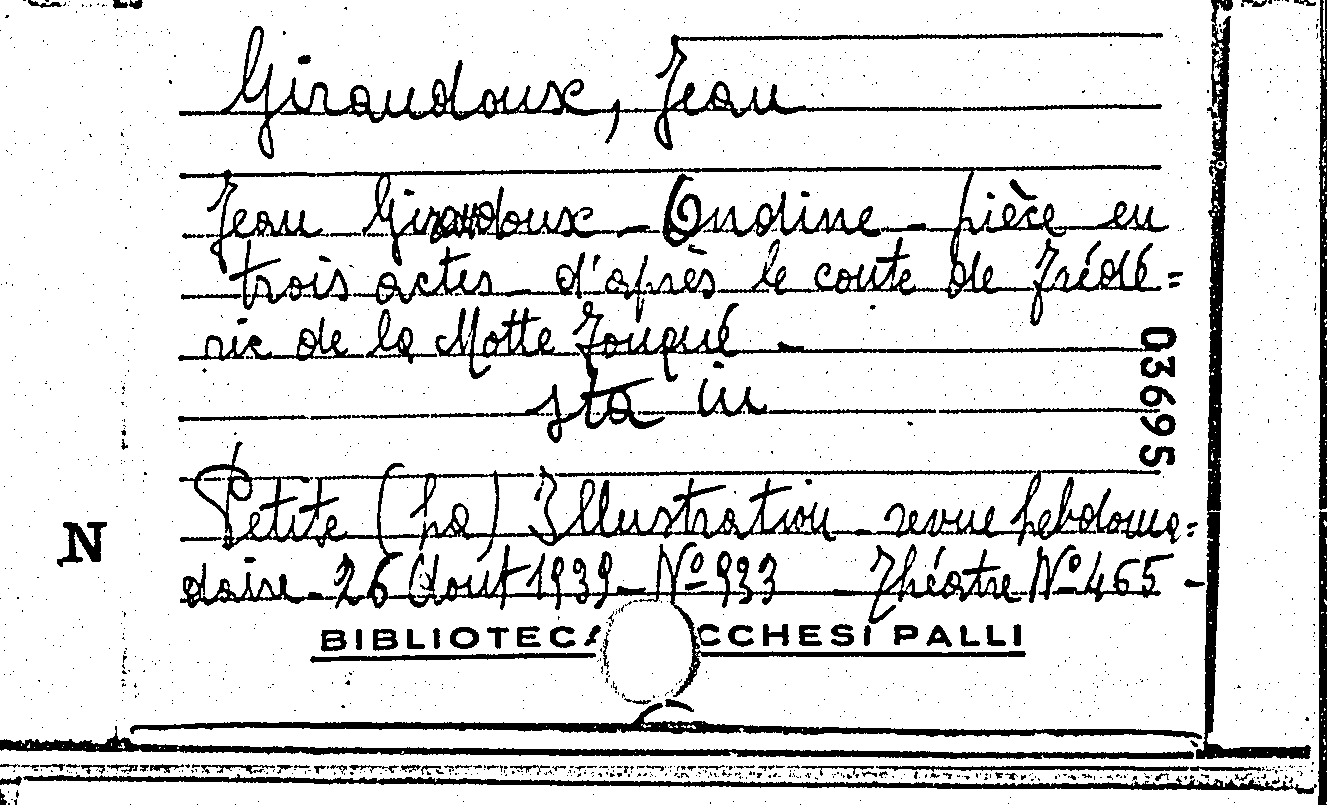 Giraudoux, Jean
Jean Giraudoux - Ondine - pièce en
trois actes - d'après le conte de Frédé=
ric de la Motte Fouqué -
sta in
Petite (La) Illustration - revue hebdoma=
daire - 26 Août 1939 - Nº 933 - Théatre Nº 465 -
N
03695
BIBLIOTECA CCHESI PALLI